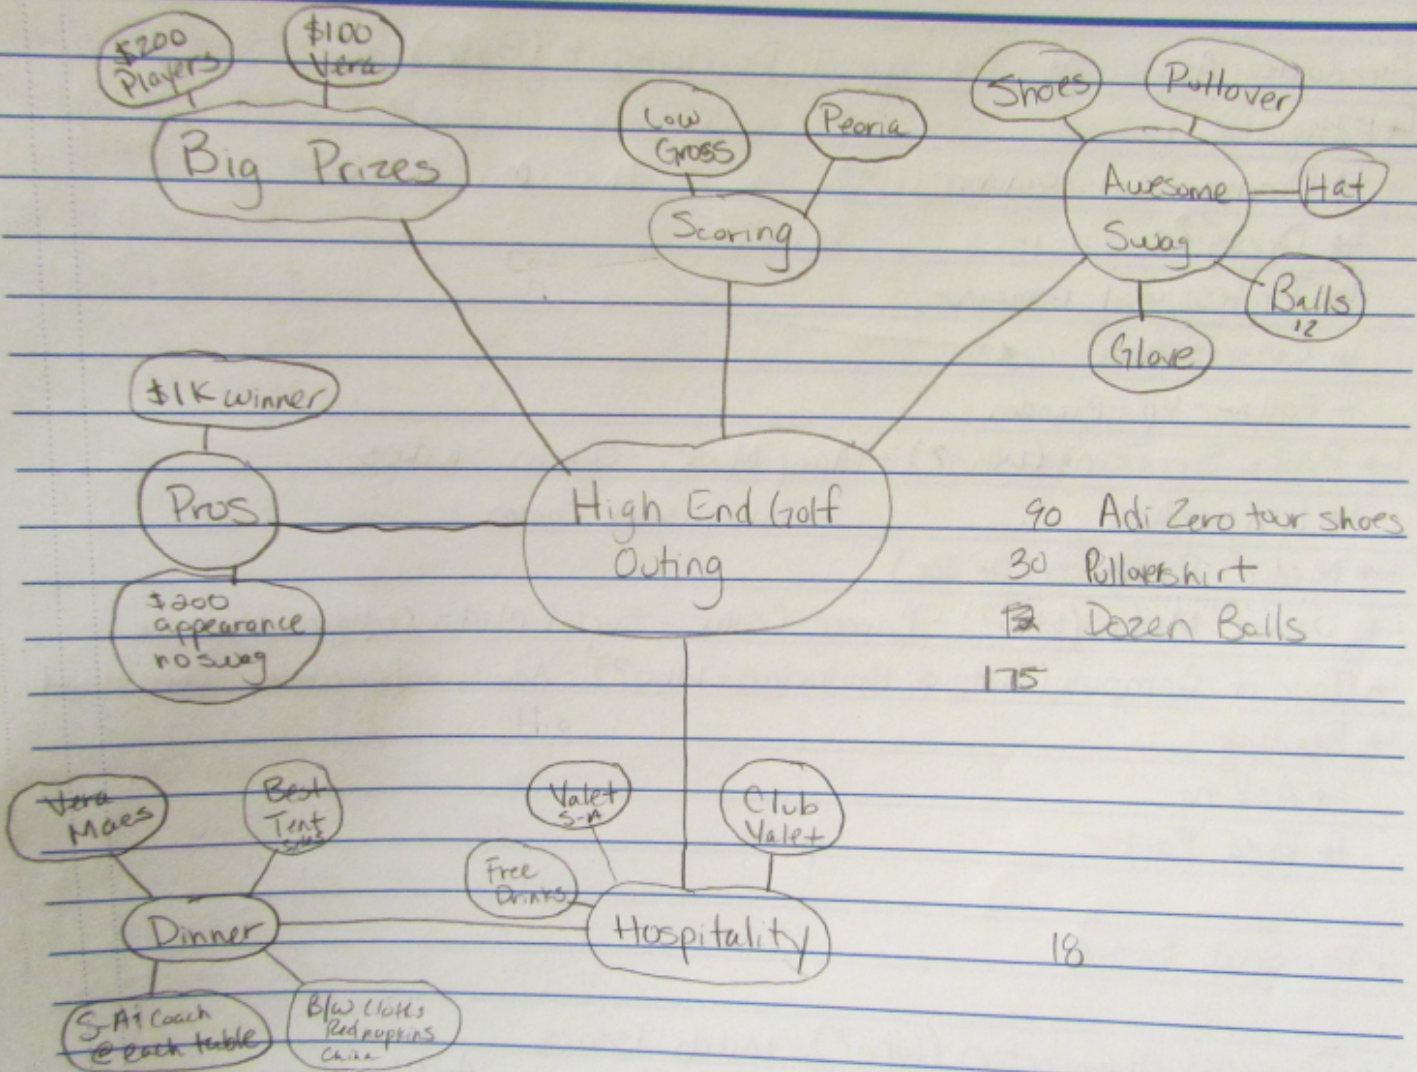 $200
Players
$100
Vera
Big Prizes
Low
Gross
Peoria
Scoring
Shoes
Pullover
Awesome
Swag
Hat
Balls
12
Glove
$1K winner
Pros
$200
appearance
no swag
High End Golf
Outing
90 Adi Zero tour shoes
30 Pullovershirt
Dozen Balls
175
Vera
Maes
Best
Tent
Valet
S-A
Club
Valet
Free
Drinks
Dinner
Hospitality
18
S-Ai Coach
@ each table
B/W Cloths
Red napkins
China